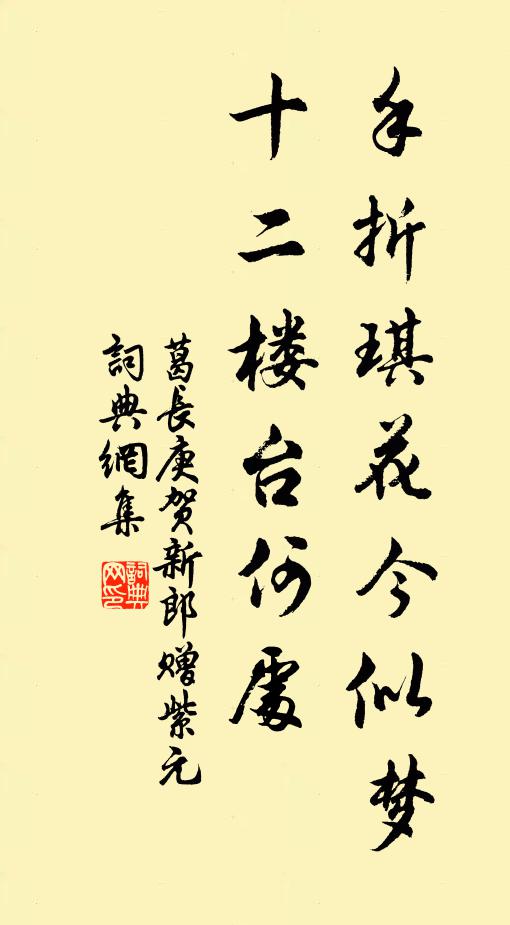 手折琪花今似梦
十二楼台何處
葛長庚贺新郎赠紫元
詞典網集
詞典
网印